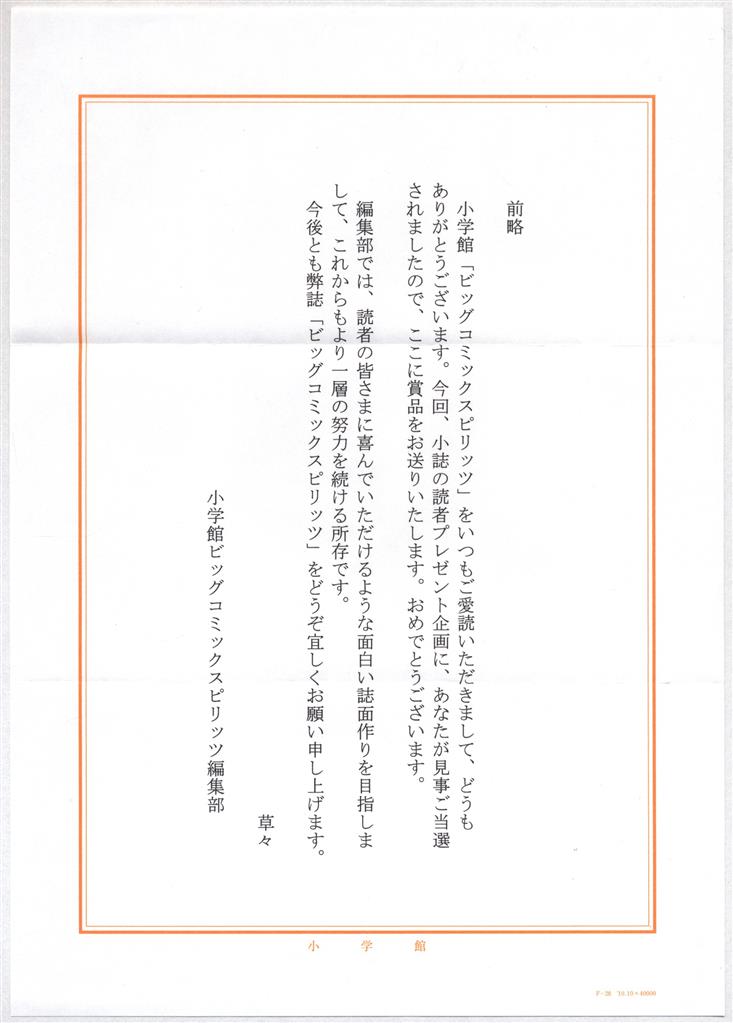 前略
小学館「ビッグコミックスピリッツ」をいつもご愛読いただきまして、どうも
ありがとうございます。今回、小誌の読者プレゼント企画に、あなたが見事ご当選
されましたので、ここに賞品をお送りいたします。おめでとうございます。
編集部では、読者の皆さまに喜んでいただけるような面白い誌面作りを目指しま
して、これからもより一層の努力を続ける所存です。
今後とも弊誌「ビッグコミックスピリッツ」をどうぞ宜しくお願い申し上げます。
草々
小学館ビッグコミックスピリッツ編集部
小学館
F-28 '10.10×40000